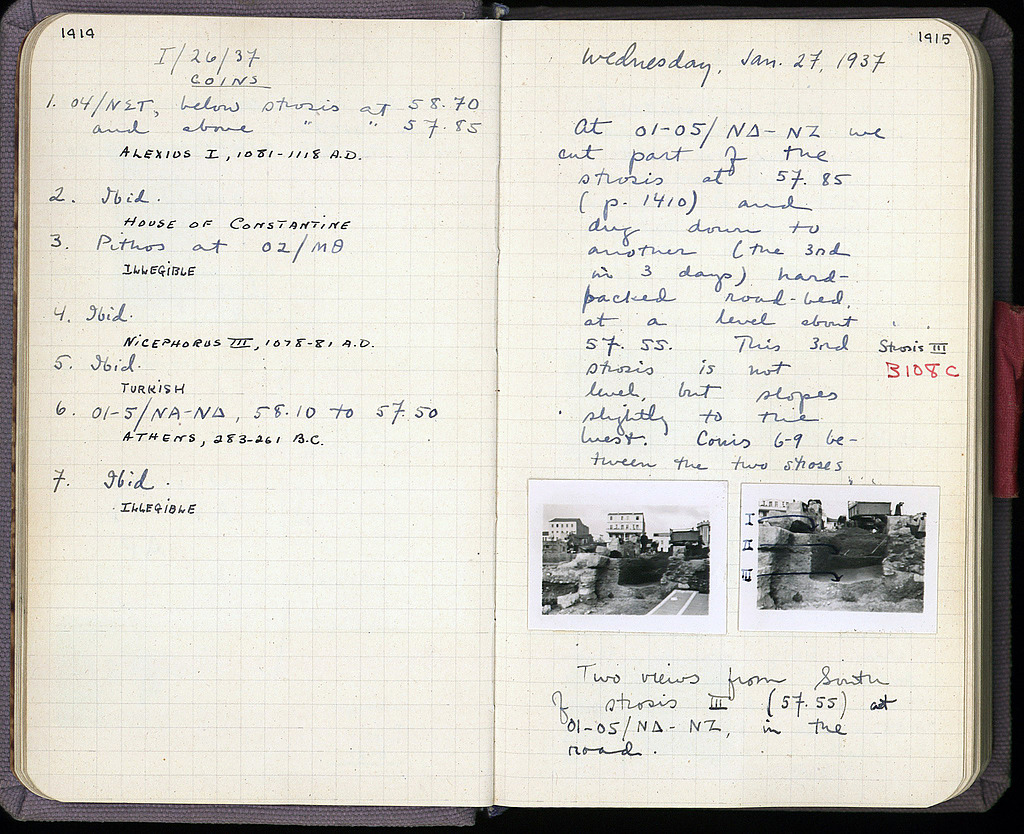 1414
I/26/37
COINS
1. 04/ΝΣΤ, below strosis at 58.70
and above " " 57.85
ALEXIUS I, 1081-1118 A.D.
2. Ibid.
HOUSE OF CONSTANTINE
3. Pithos at 02/ΜΘ
ILLEGIBLE
4. Ibid.
NICEPHORUS III, 1078-81 A.D.
5. Ibid.
TURKISH
6. 01-5/ΝΑ-ΝΔ, 58.10 to 57.50
ATHENS, 283-261 B.C.
7. Ibid.
ILLEGIBLE
1415
Wednesday, Jan. 27, 1937
At 01-05/ΝΔ-ΝΖ we
cut part of the
strosis at 57.85
(p. 1410) and
dug down to
another (the 3rd
in 3 days) hard-
packed road-bed,
at a level about
57.55. This 3rd
strosis is not
level, but slopes
slightly to the
west. Coins 6-9 be-
tween the two stroses
Strosis III
B108C
I
II
III
Two views from South
of strosis III (57.55) at
01-05/ΝΔ-ΝΖ, in the
road.